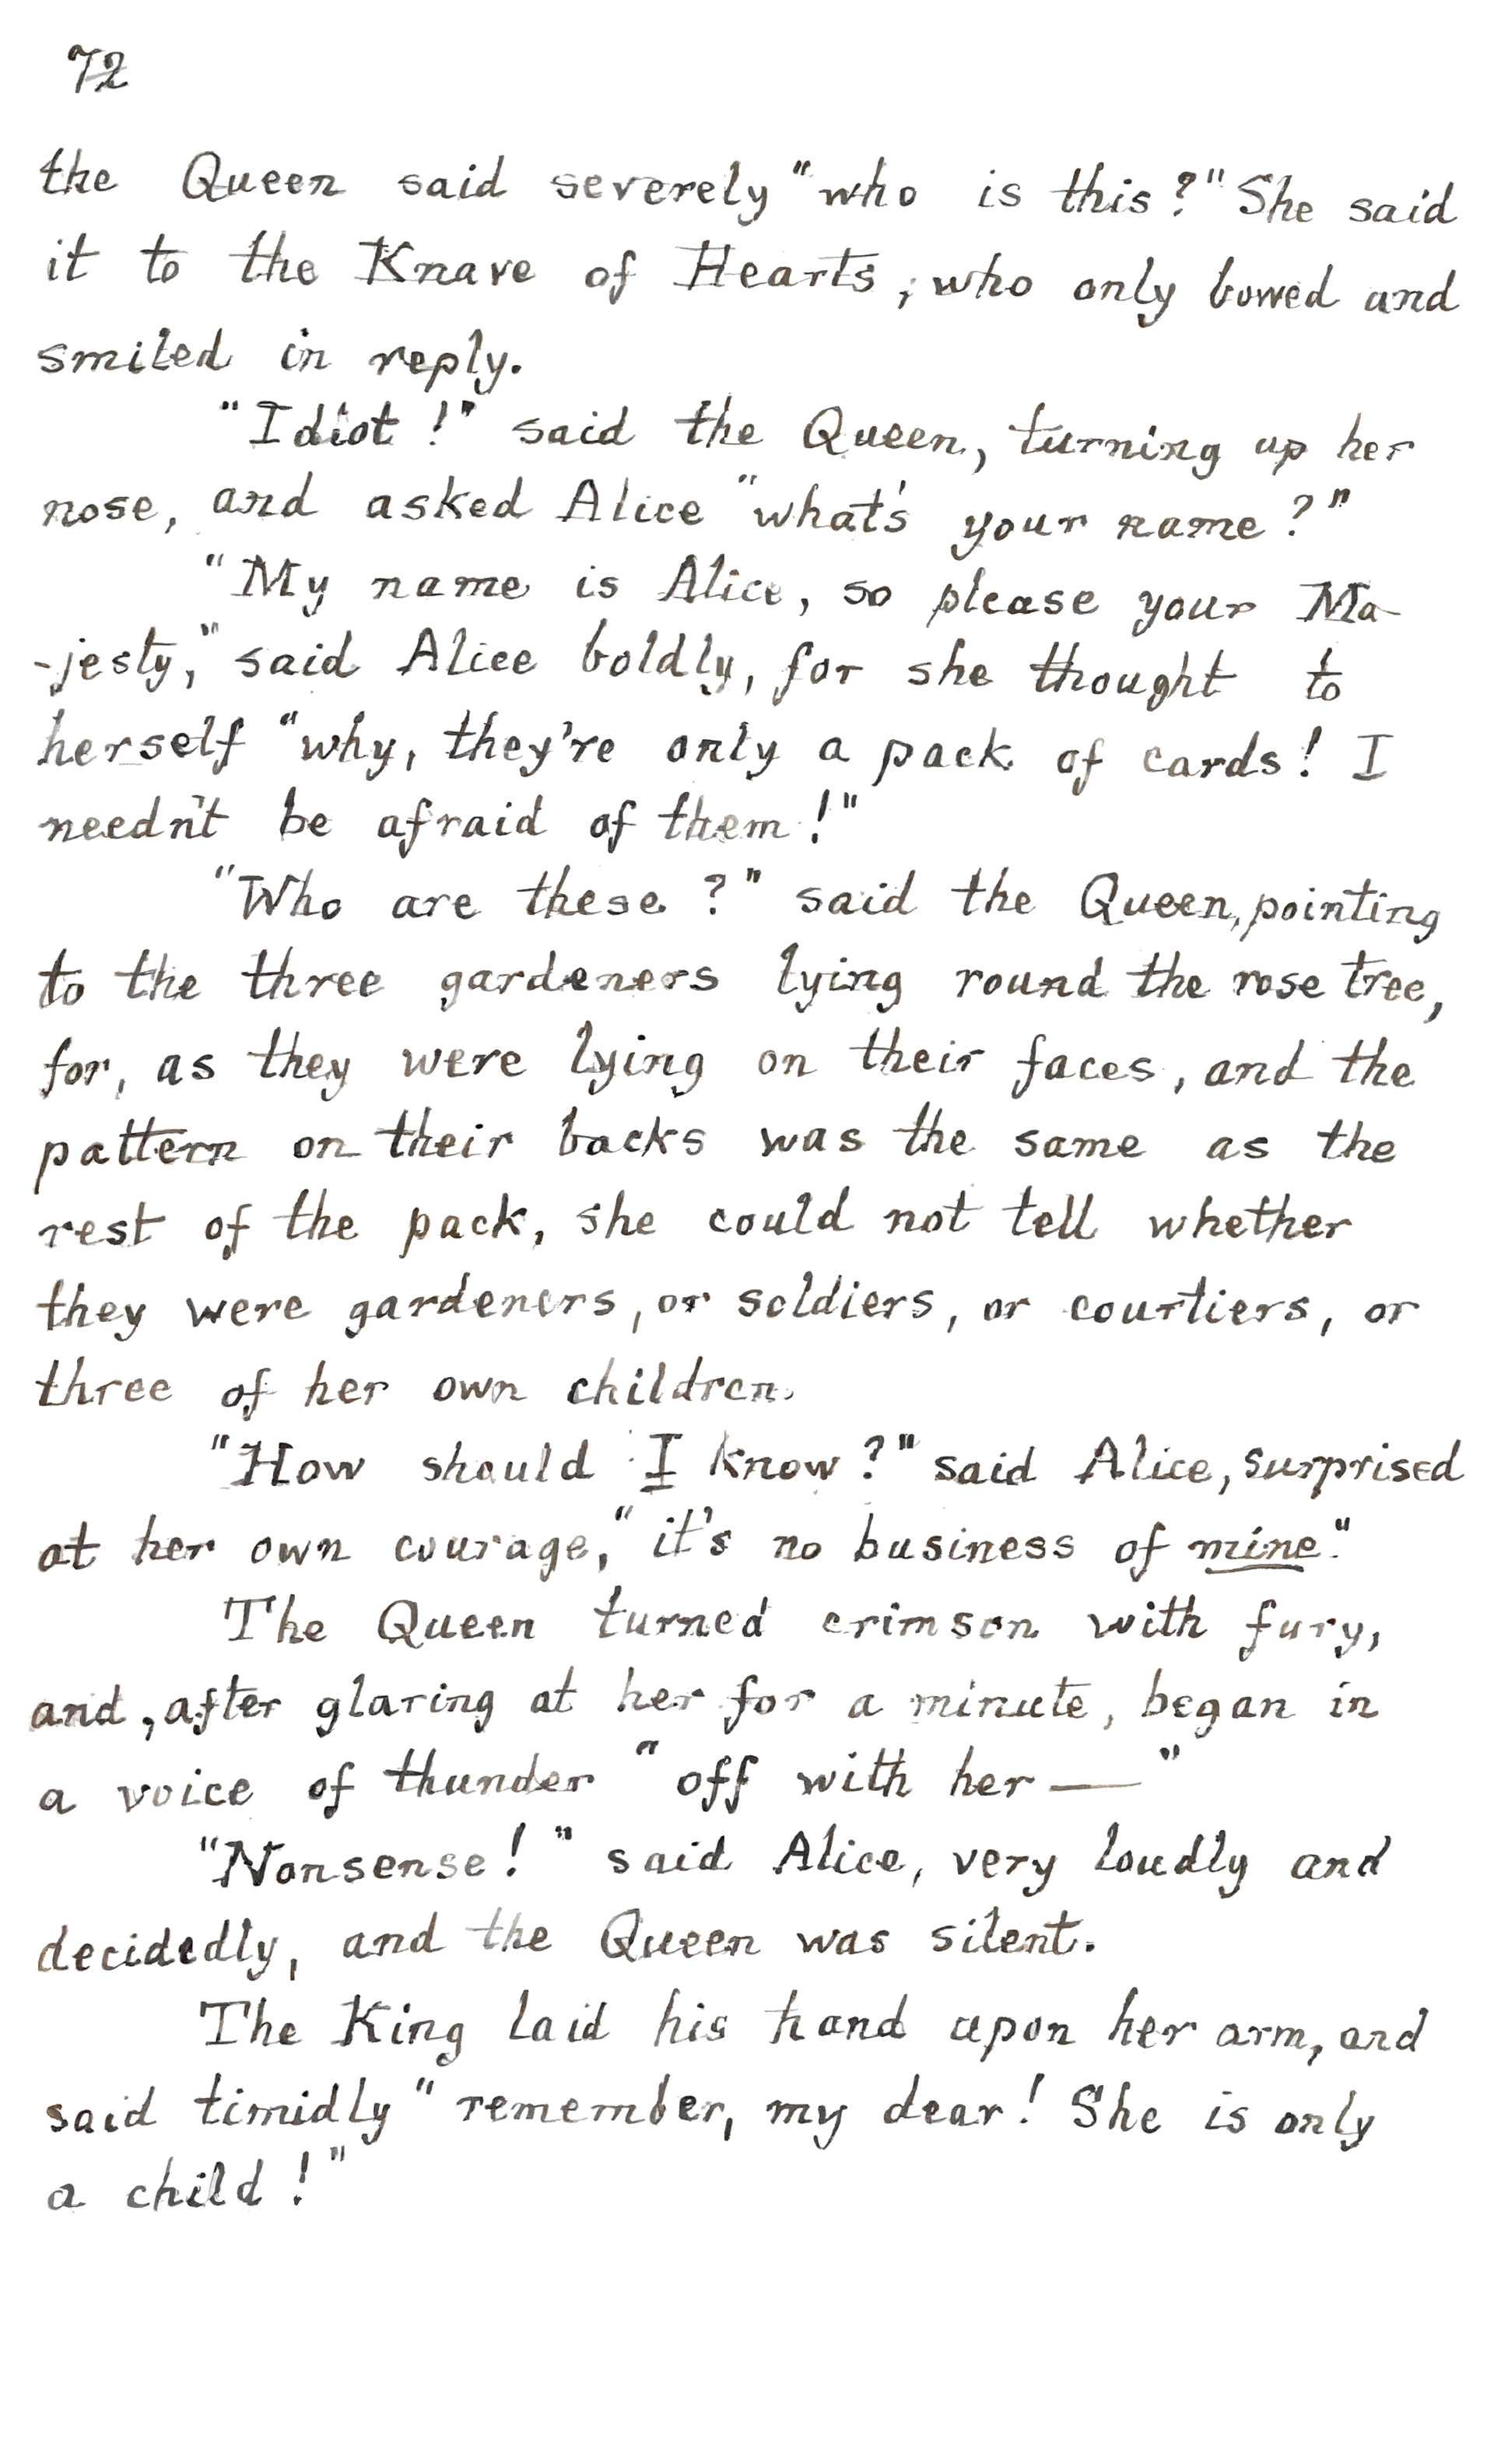 72
the Queen said severely "who is this?" She said
it to the Knave of Hearts, who only bowed and
smiled in reply.
"Idiot!" said the Queen, turning up her
nose, and asked Alice "what's your name?"
"My name is Alice, so please your Ma-
-jesty," said Alice boldly, for she thought to
herself "why, they're only a pack of cards! I
needn't be afraid of them!"
"Who are these?" said the Queen, pointing
to the three gardeners lying round the rose tree,
for, as they were lying on their faces, and the
pattern on their backs was the same as the
rest of the pack, she could not tell whether
they were gardeners, or soldiers, or courtiers, or
three of her own children.
"How should I know?" said Alice, surprised
at her own courage, "it's no business of mine."
The Queen turned crimson with fury,
and, after glaring at her for a minute, began in
a voice of thunder "off with her—"
"Nonsense!" said Alice, very loudly and
decidedly, and the Queen was silent.
The King laid his hand upon her arm, and
said timidly "remember, my dear! She is only
a child!"